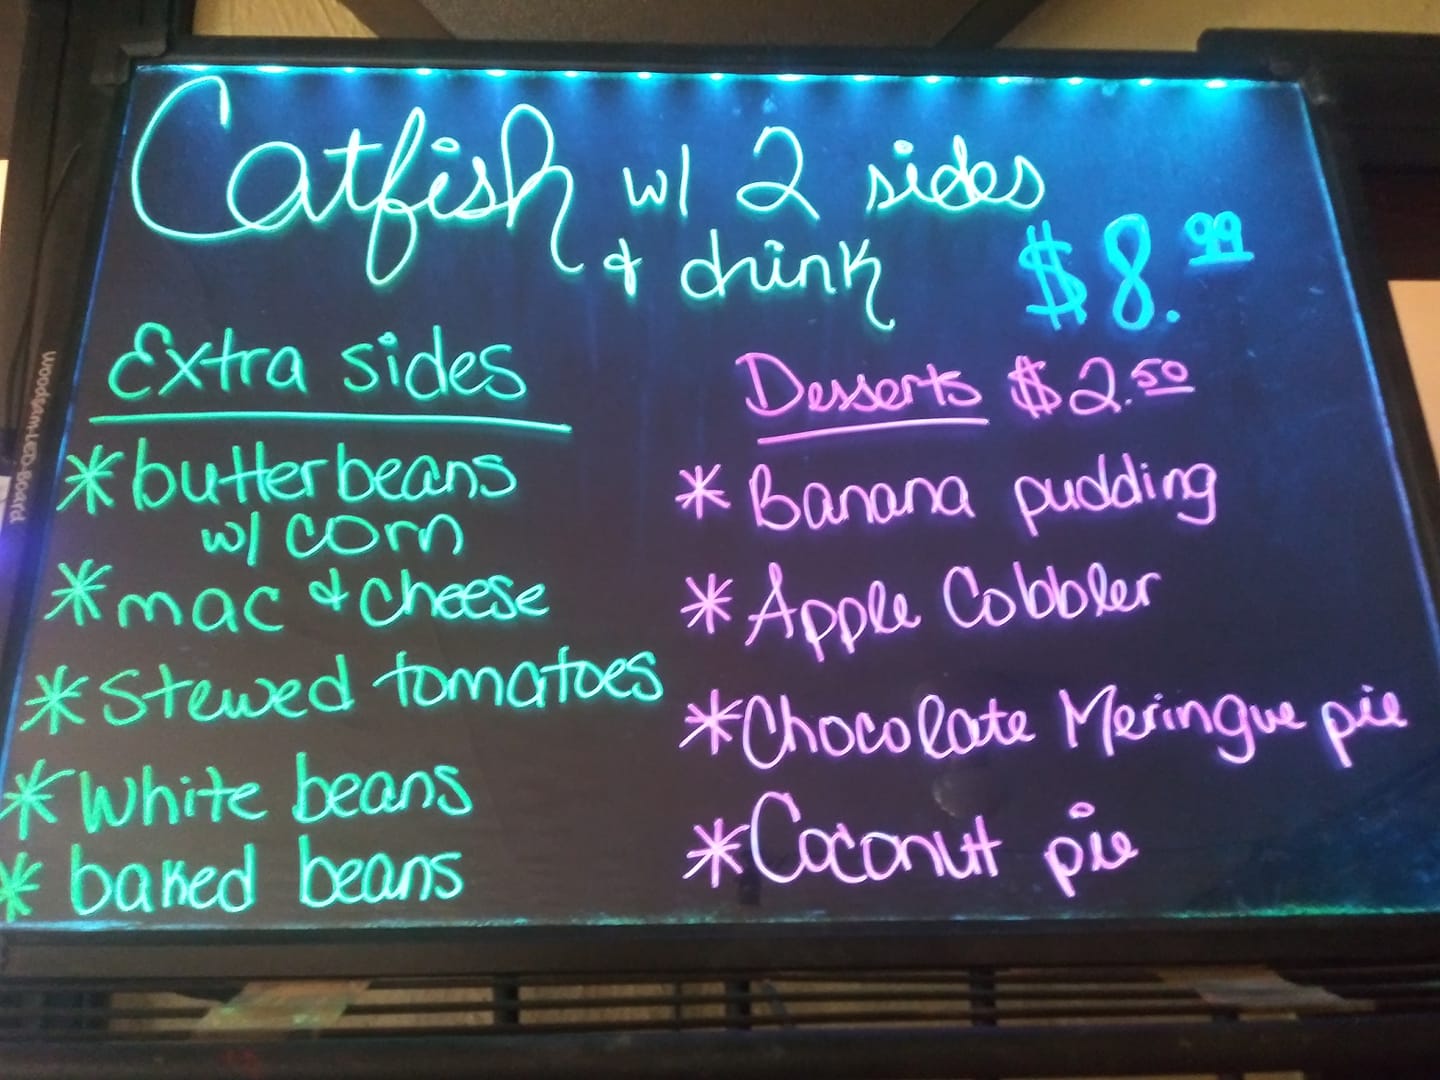 Catfish w/ 2 sides
& drink $8.99
Extra sides
* butterbeans
w/ corn
* mac & cheese
* Stewed tomatoes
* White beans
* baked beans
Desserts $2.50
* Banana pudding
* Apple Cobbler
* Chocolate Meringue pie
* Coconut pie
Woodsam-LED-Board